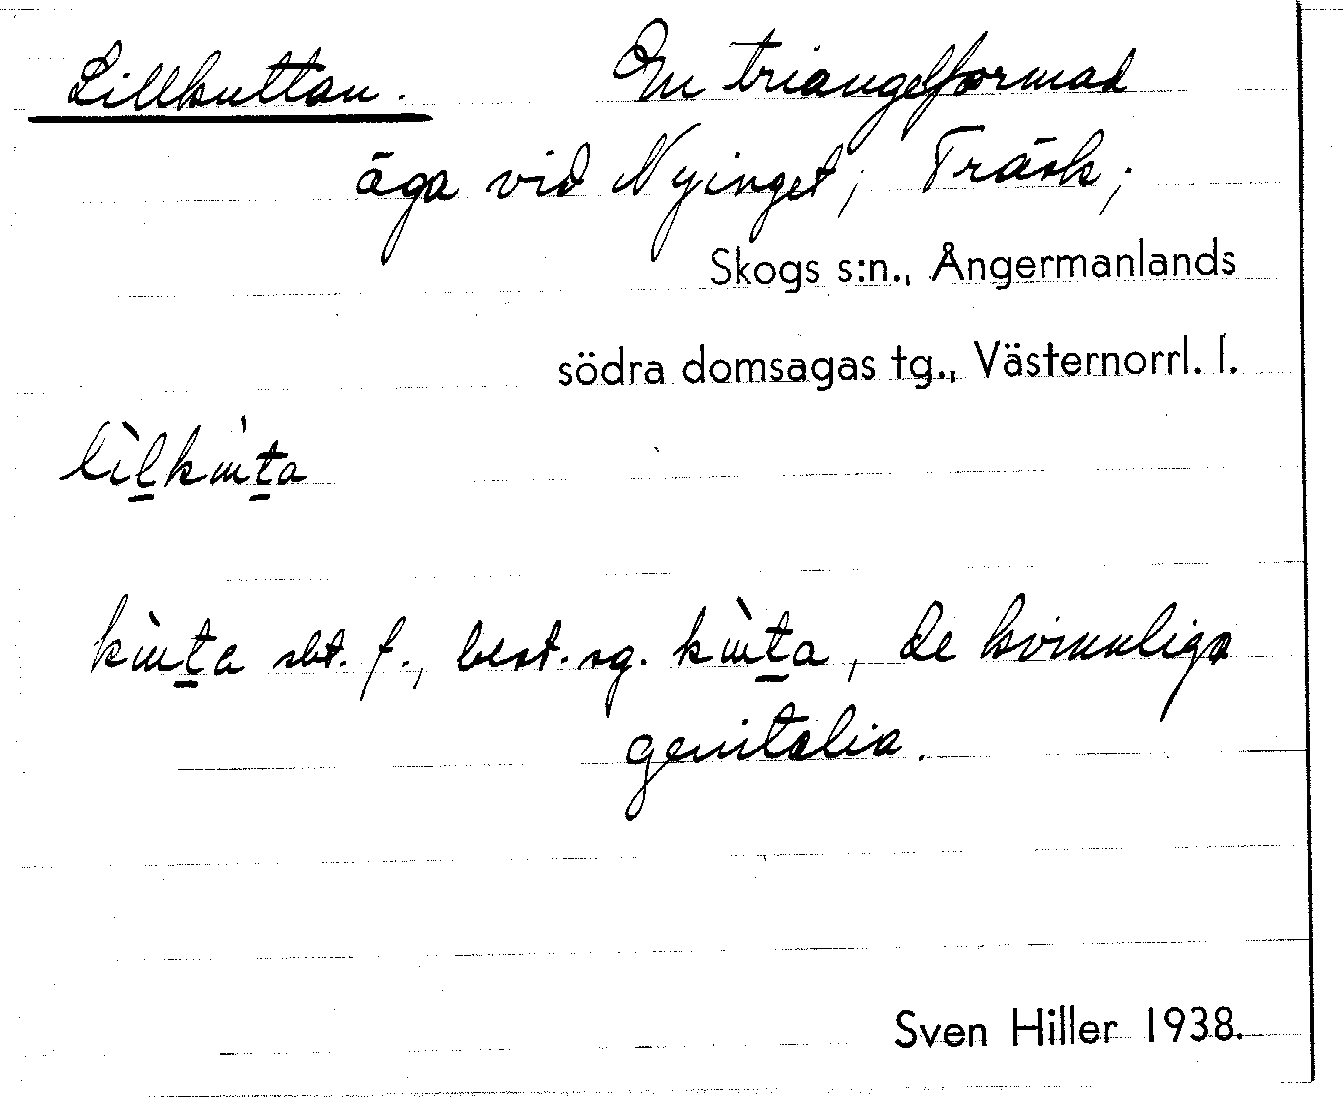 Lillkuttan. En triangelformad
äga vid Nyinget, Träsk,
Skogs s:n., Ångermanlands
södra domsagas tg., Västernorrl. l.
lìl̲kut̲a
kùt̲a sbt. f., best. sg. kùt̲a, de kvinnliga
genitalia.
Sven Hiller 1938.